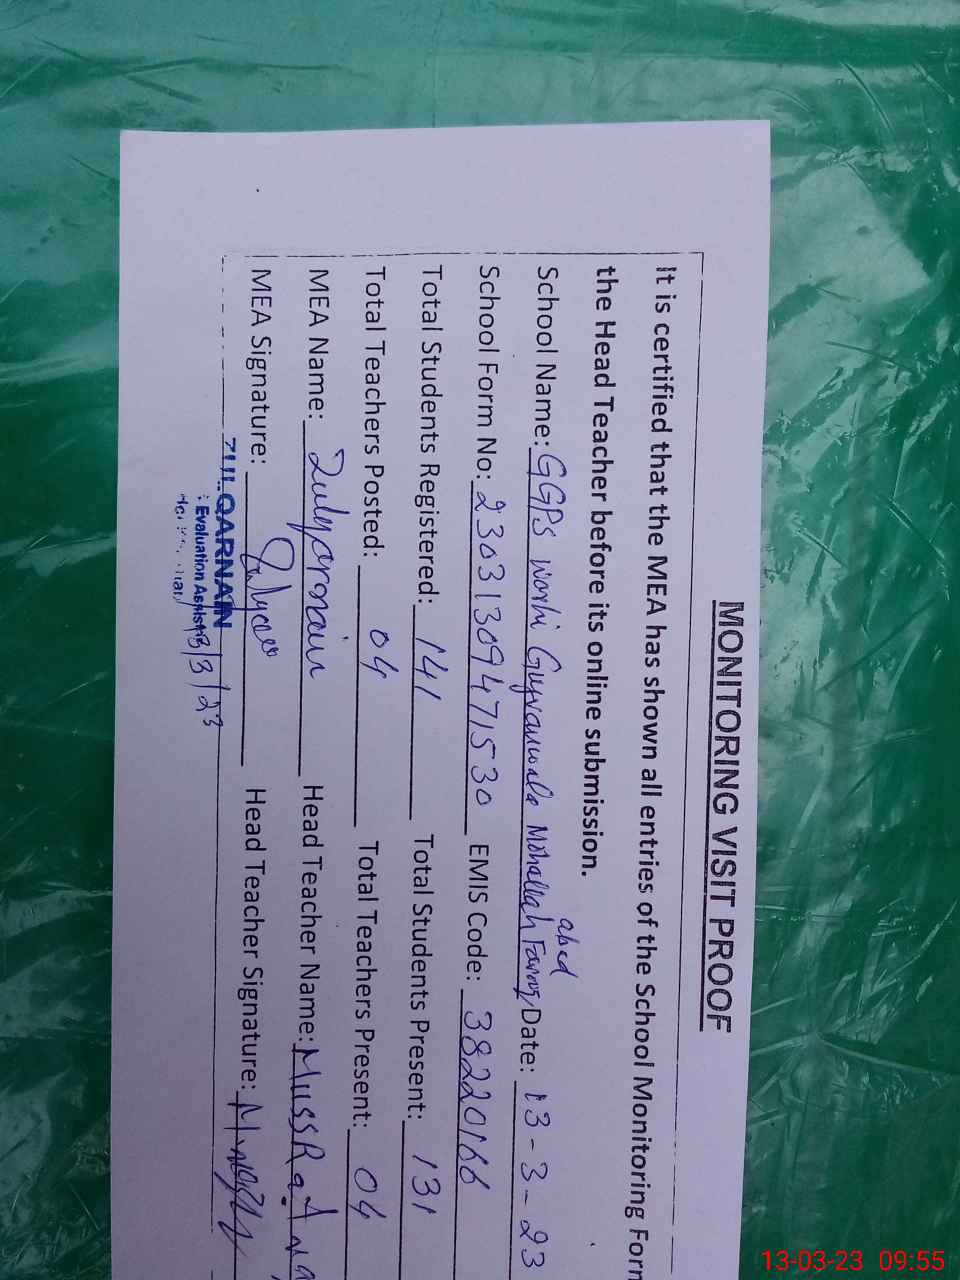 MONITORING VISIT PROOF
It is certified that the MEA has shown all entries of the School Monitoring Form
the Head Teacher before its online submission.
abad
School Name: GGPS Mohallah Date: 13-3-23
School Form No: 23031309471530 EMIS Code: 38220166
Total Students Registered: 141 Total Students Present: 131
Total Teachers Posted: 04 Total Teachers Present: 04
MEA Name: Zulqarnain Head Teacher Name: MussRat
MEA Signature: Head Teacher Signature:
ZULQARNAIN
Evaluation Assistant
13/3/23
13-03-23 09:55